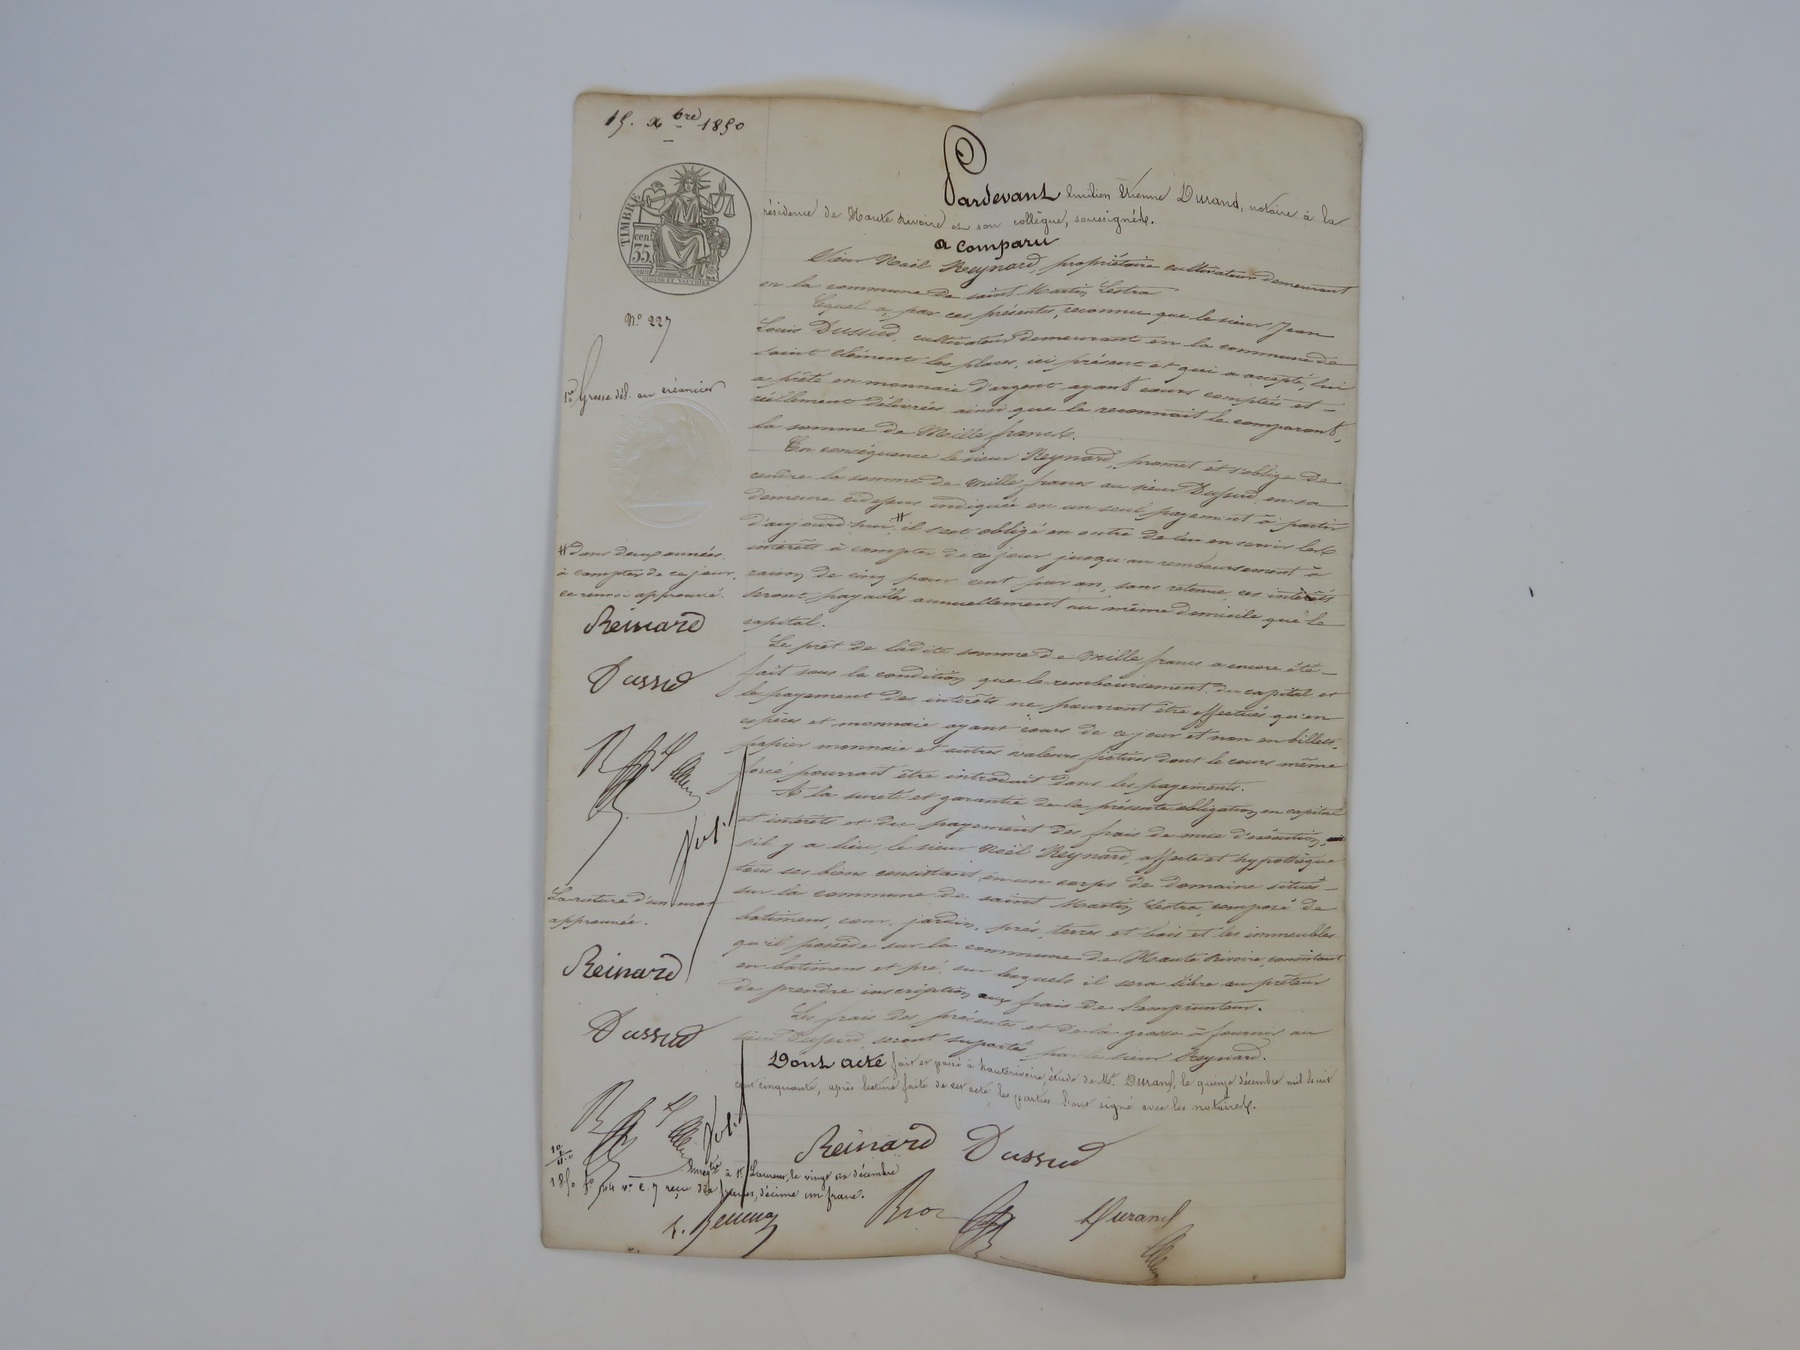 15. xbre 1850
TIMBRE
35 cen.
No 227
1re Grosse dél. au créancier
Pardevant Emilien Etienne Durand, notaire à la
résidence de Haute Rivoire et son collègue, soussignés.
a comparu
Sieur Noël Reynard, propriétaire cultivateur demeurant
en la commune de saint Martin Lestra
Lequel a, par ces présentes, reconnu que le sieur Jean
Louis Dussud, cultivateur demeurant en la commune de
saint Clément les places, ici présent et qui a accepté, lui
a prêté en monnaie d'argent ayant cours comptées et
réellement délivrées ainsi que le reconnait le comparant,
la somme de Mille francs.
En conséquence le sieur Reynard, promet et s'oblige de
rendre la somme de mille francs au sieur Dussud en sa
demeure cidessus indiquée en un seul payement à partir
d'aujourd'hui, # il s'est obligé en outre de lui en servir les
intérêts à compter de ce jour jusqu'au remboursement à
raison de cinq pour cent par an, sans retenue, ces intérêts
seront payables annuellement au même domicile que le
capital.
Le prêt de ladite somme de mille francs a encore été
fait sous la condition que le remboursement du capital et
le payement des intérêts ne pourront être effectués qu'en
espèces et monnaie ayant cours de ce jour et non en billets,
papier monnaie et autres valeurs fictives dont le cours même
forcé pourrait être introduit dans les payements.
A la sureté et garantie de la présente obligation en capital
et intérêts et du payement des frais de mise d'exécution,
s'il y a lieu, le sieur Noël Reynard, affecte et hypothèque
tous ses biens consistant en un corps de domaine situés
sur la commune de saint Martin Lestra, composé de
batimens, cour, jardin, prés, terres et bois et les immeubles
qu'il possède sur la commune de Haute Rivoire, consistant
en batimens et pré, sur lesquels il sera libre au prêteur
de prendre inscription aux frais de l'emprunteur.
Les frais des présentes et de la grosse à fournir au
sieur Dussud, seront suportés par le sieur Reynard.
Dont acte fait et passé à hauterivoire, étude de Me Durand, le quinze décembre mil huit
cent cinquante, après lecture faite de cet acte, les parties l'ont signé avec les notaires.
# dans deux années
à compter de ce jour,
ce renvoi approuvé.
Reinard
Dussud
La rature d'un mot
approuvée.
Reinard
Dussud
Reinard Dussud
Enregtré à St. Laurent, le vingt six décembre
1850 fo 54 vo c. 7 reçu dix francs, décime un franc.
Durand